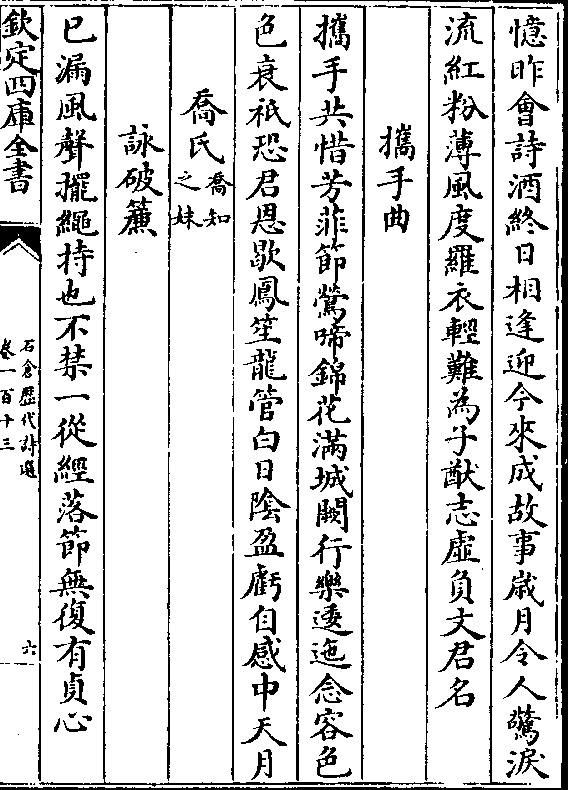 憶昨會詩酒終日相逢迎今來成故事歲月令人驚淚
流紅粉薄風度羅衣輕難為子猷志虛負文君名
攜手曲
攜手共惜芳菲節鶯啼錦花滿城闕行樂逶迤念容色
色衰祗恐君恩歇鳳笙龍管白日陰盈虧自感中天月
喬氏喬知之妹
詠破簾
已漏風聲擺繩持也不禁一從經落節無復有貞心
欽定四庫全書
石倉歷代詩選
卷一百十三
六